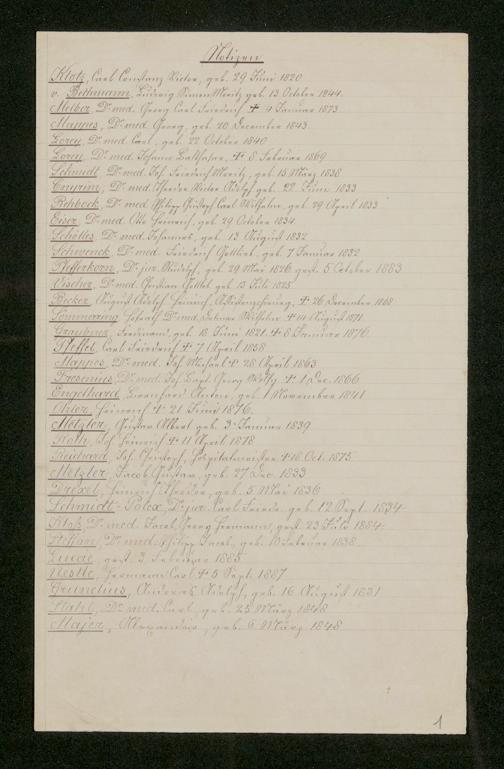 Notizen
Klotz, Carl Constanz Victor, geb. 29 Juni 1820
v. Bethmann, Ludwig Simon Moritz geb. 13 October 1844.
Melber, Dr. med. Georg Carl Friedrich + 9 Januar 1873
Mappes, Dr. med. Georg, geb. 20 December 1843.
Lorey, Dr. med. Carl, geb. 22 October 1840.
Lorey, Dr. med. Johann Balthasar, + 8 Februar 1869
Schmidt, Dr. med. Joh. Friedrich Moritz, geb. 15 März 1838
Dr. med. Theodor Victor Adolf geb. 22 Juni 1833
Rehbock, Dr. med. Philipp Christoph Carl Wilhelm, geb. 29 April 1833
Eiser, Dr. med. Otto Heinrich, geb. 29 October 1834
Schölles, Dr. med. Johannes, geb. 13 August 1832
Schwenck, Dr. med. Friedrich Gottlieb, geb. 7 Januar 1832
Pfefferkorn, Dr. jur. Rudolph, geb. 29 Mai 1826 gest. 5 October 1883
Vischer, Dr. med. Christian Gottlob geb. 13 Juli 1825
Becker, August Adolf Heinrich, + 26 December 1868
Sömmerring, Hofrath Dr. med. Detmar Wilhelm + 14 August 1871
Graubner, Ferdinand, geb. 18 Juni 1821. + 8 Januar 1876.
Stoffel, Carl Friedrich + 7 April 1858
Mappes, Dr. med. Joh. Michael + 28 April 1863
Fresenius, Dr. med. Joh. Georg + 1 Dec. 1866
Engelhard, Bernhard Anton, geb. 1 November 1841
Heinrich + 21 Juni 1876.
Metzler, Gustav Albert geb. 3 Januar 1839
Roth, Joh. Heinrich + 11 April 1878
Reichard, Joh. Christoph, Hospitalmeister + 18 Oct. 1875
Metzler, Jacob Gustav, geb. 27 Dec. 1833
Drexel, Heinrich Theodor, geb. 5 Mai 1836
Schmidt-Polex, Dr. jur. Carl geb. 12 Sept. 1834
Kloß, Dr. med. Jacob Georg Hermann, gest. 23 Juli 1884.
Dr. med. Philipp Jacob, geb. 10 Februar 1838
Lucae, gest. 3 Februar 1885
Nestle, Hermann Carl + 5 Sept. 1887
Grunelius, Andreas Adolph, geb. 16 August 1831
Stahl, Dr. med. Carl, geb. 25 März 1848
Majer, Alexander, geb. 6 März 1848
1